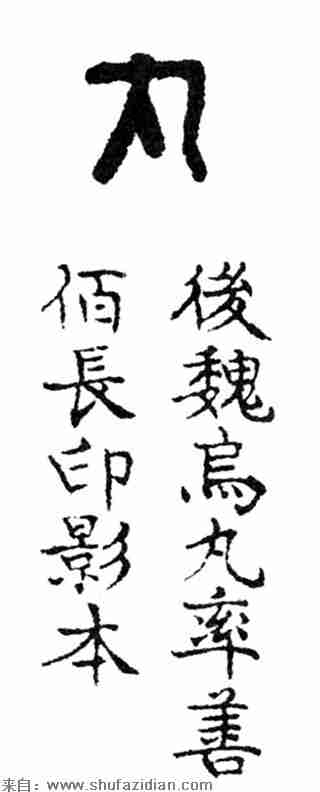 丸
後魏烏丸率善
佰長印影本
来自：www.shufazidian.com